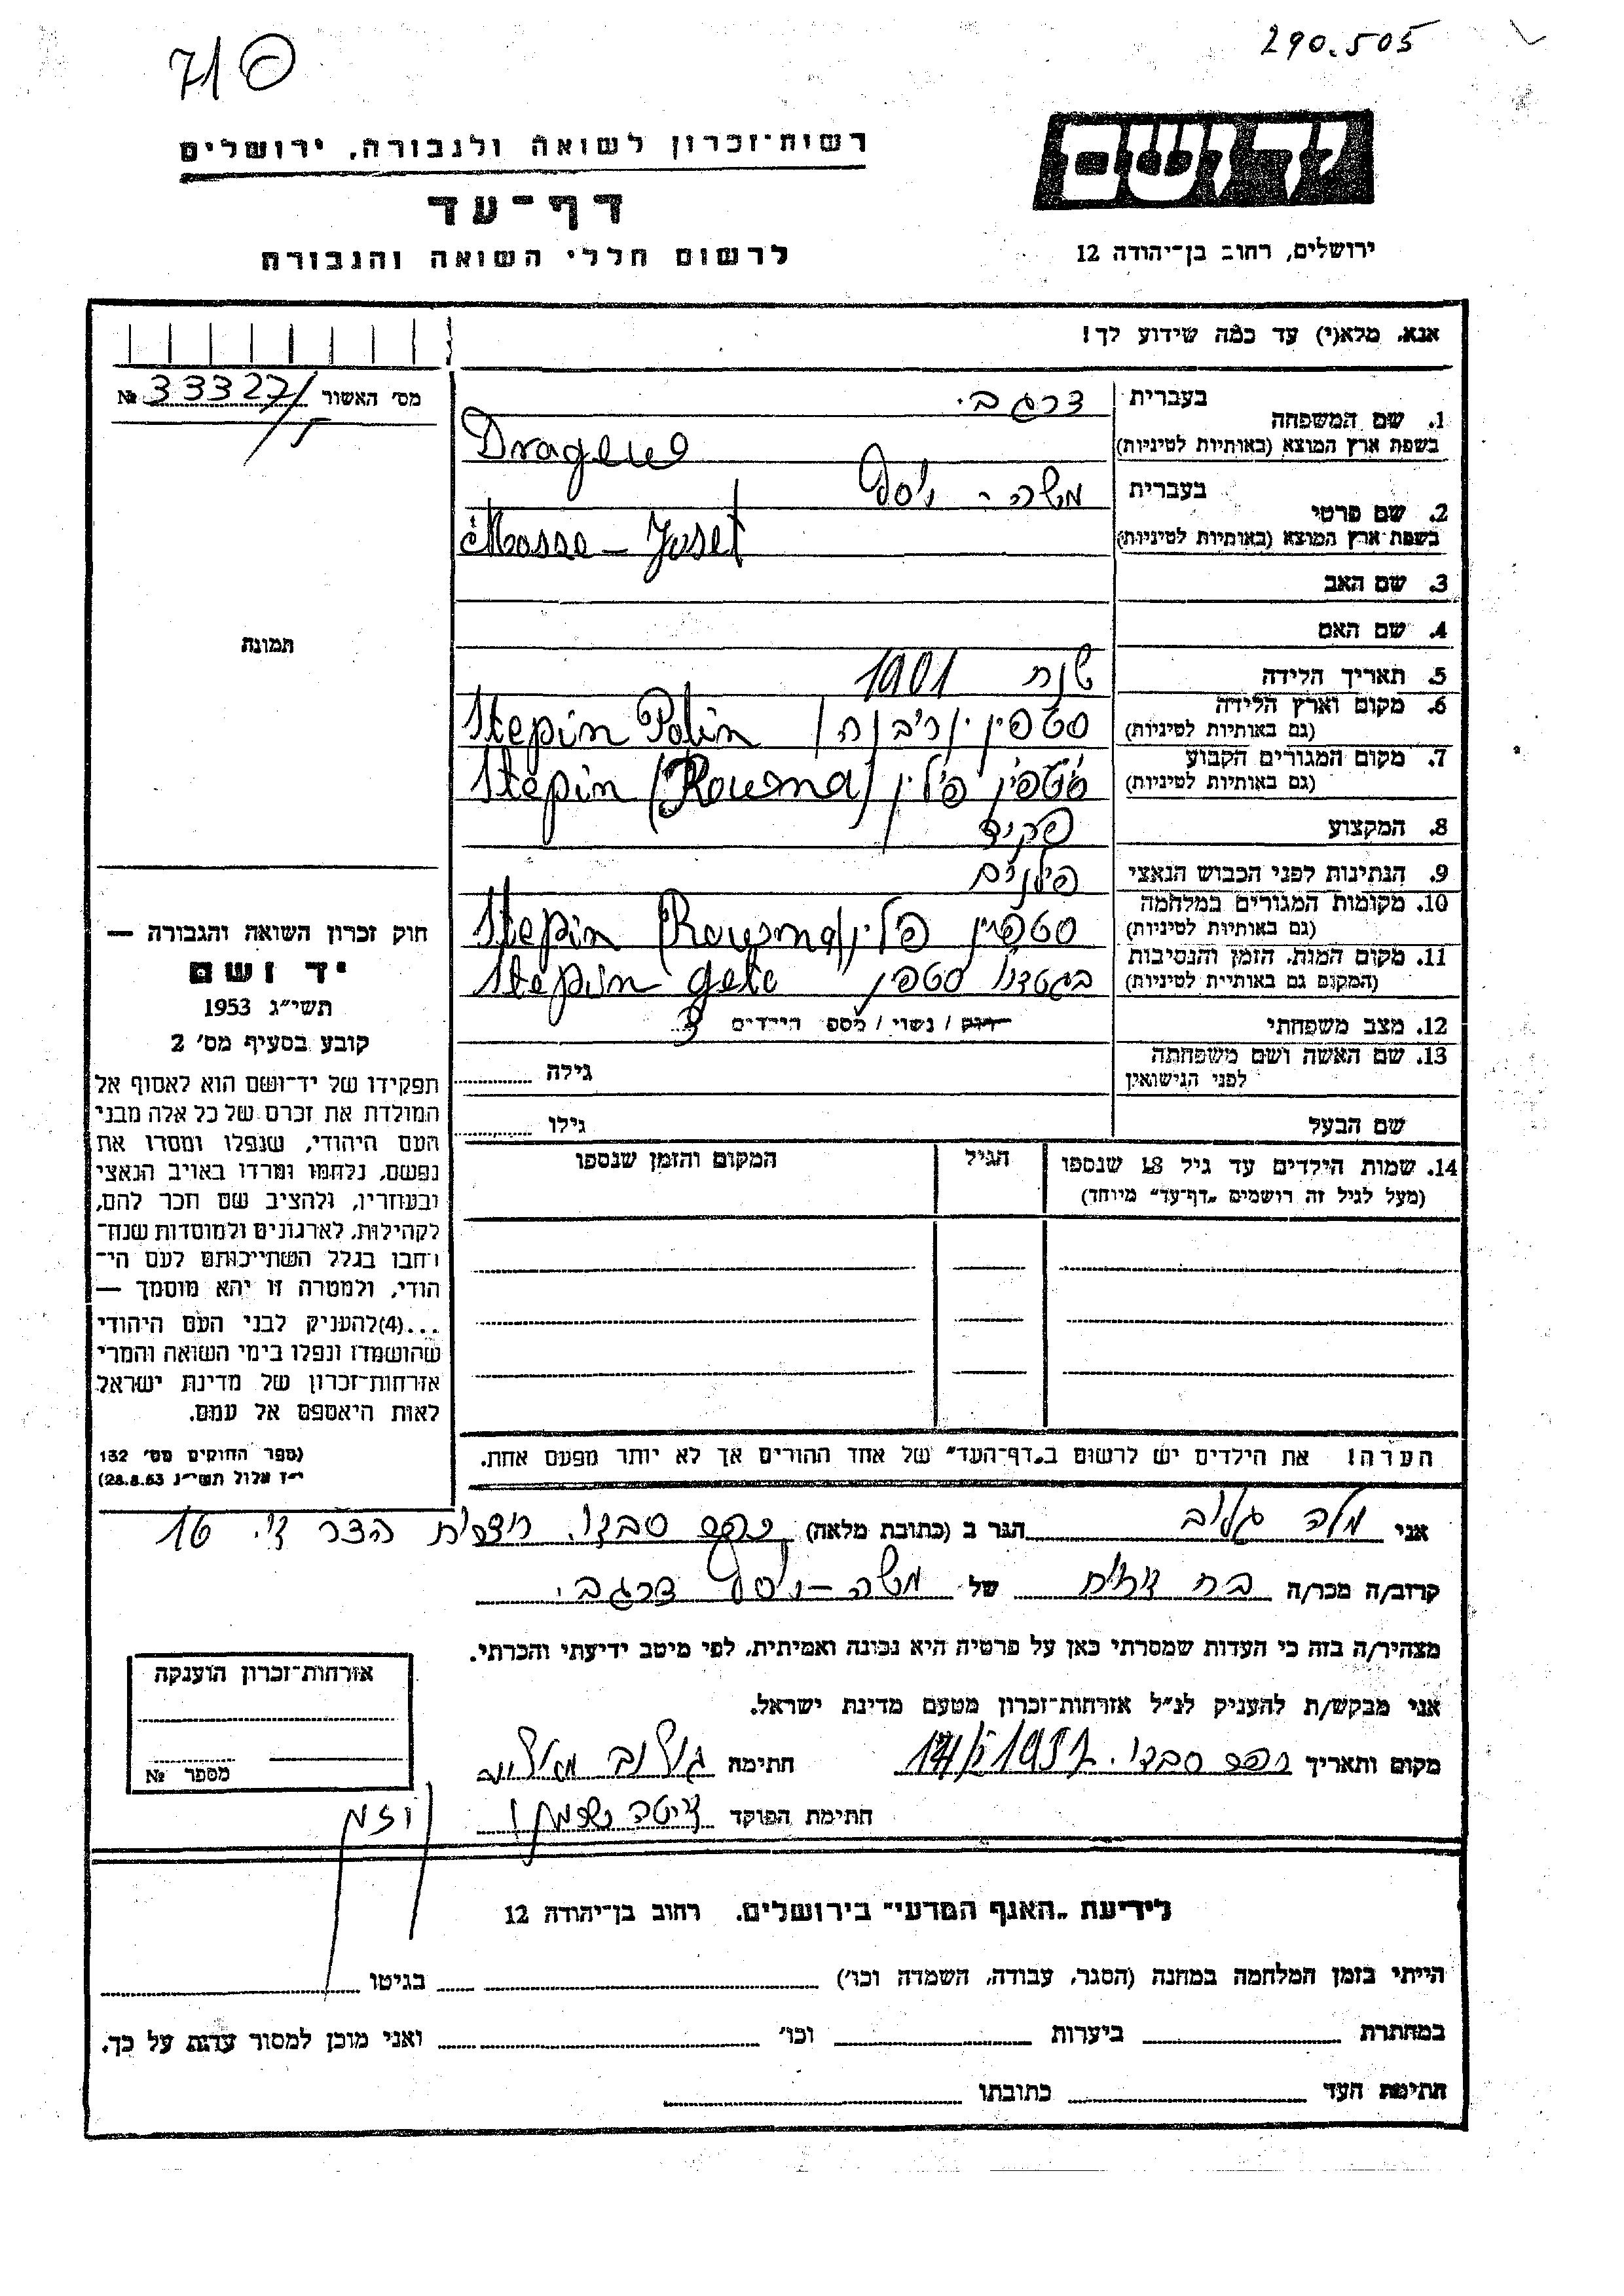 290.505
710
יד ושם
רשות־זכרון לשואה ולגבורה, ירושלים
דף־עד
לרשום חללי השואה והגבורה
ירושלים, רחוב בן־יהודה 12
אנא, מלא(י) עד כמה שידוע לך!
מס׳ האשור № 33327/5
1. שם המשפחה בעברית
בשפת ארץ המוצא (באותיות לטיניות)
2. שם פרטי בעברית משה - יוסף
בשפת ארץ המוצא (באותיות לטיניות) Mosse - Jusef
3. שם האב
4. שם האם
תמונה
5. תאריך הלידה שנת 1901
6. מקום וארץ הלידה סטפין Stepin Polin
(גם באותיות לטיניות)
7. מקום המגורים הקבוע סטפין פולין Stepin (Rowsna)
(גם באותיות לטיניות)
8. המקצוע פקיד
9. הנתינות לפני הכבוש הנאצי
10. מקומות המגורים במלחמה סטפין פולין Stepin (Rowsna)
(גם באותיות לטיניות)
11. מקום המות, הזמן והנסיבות סטפין Stepin geto
(המקום גם באותיית לטיניות)
12. מצב משפחתי רווק / נשוי / מספ הילדים 3
13. שם האשה ושם משפחתה גילה
לפני הנישואין
שם הבעל גילו
14. שמות הילדים עד גיל 18 שנספו הגיל המקום והזמן שנספו
(מעל לגיל זה רושמים „דף־עד״ מיוחד)
הערה! את הילדים יש לרשום ב„דף־העד״ של אחד ההורים אך לא יותר מפעם אחת.
חוק זכרון השואה והגבורה —
יד ושם
תשי״ג 1953
קובע בסעיף מס׳ 2
תפקידו של יד־ושם הוא לאסוף אל
המולדת את זכרם של כל אלה מבני
העם היהודי, שנפלו ומסרו את
נפשם, נלחמו ומרדו באויב הנאצי
ובעוזריו, ולהציב שם וזכר להם,
לקהילות, לארגונים ולמוסדות שנח־
רבו בגלל השתייכותם לעם הי־
הודי, ולמטרה זו יהא מוסמך —
...(4) להעניק לבני העם היהודי
שהושמדו ונפלו בימי השואה והמרי
אזרחות־זכרון של מדינת ישראל
לאות היאספם אל עמם.
(ספר החוקים מס׳ 132
י״ז אלול תשי״ג 28.8.53)
אני הגר ב (כתובת מלאה) 16
קרוב/ה מכר/ה בת דודה של משה - יוסף
מצהיר/ה בזה כי העדות שמסרתי כאן על פרטיה היא נכונה ואמיתית, לפי מיטב ידיעתי והכרתי.
אני מבקש/ת להעניק לנ״ל אזרחות־זכרון מטעם מדינת ישראל.
מקום ותאריך חתימה
חתימת הפוקד
אזרחות־זכרון הוענקה
מספר №
לידיעת „האגף המדעי״ בירושלים, רחוב בן־יהודה 12
הייתי בזמן המלחמה במחנה (הסגר, עבודה, השמדה וכו׳) בגיטו
במחתרת ביערות וכו׳ ואני מוכן למסור עדות על כך.
חתימת העד כתובתו